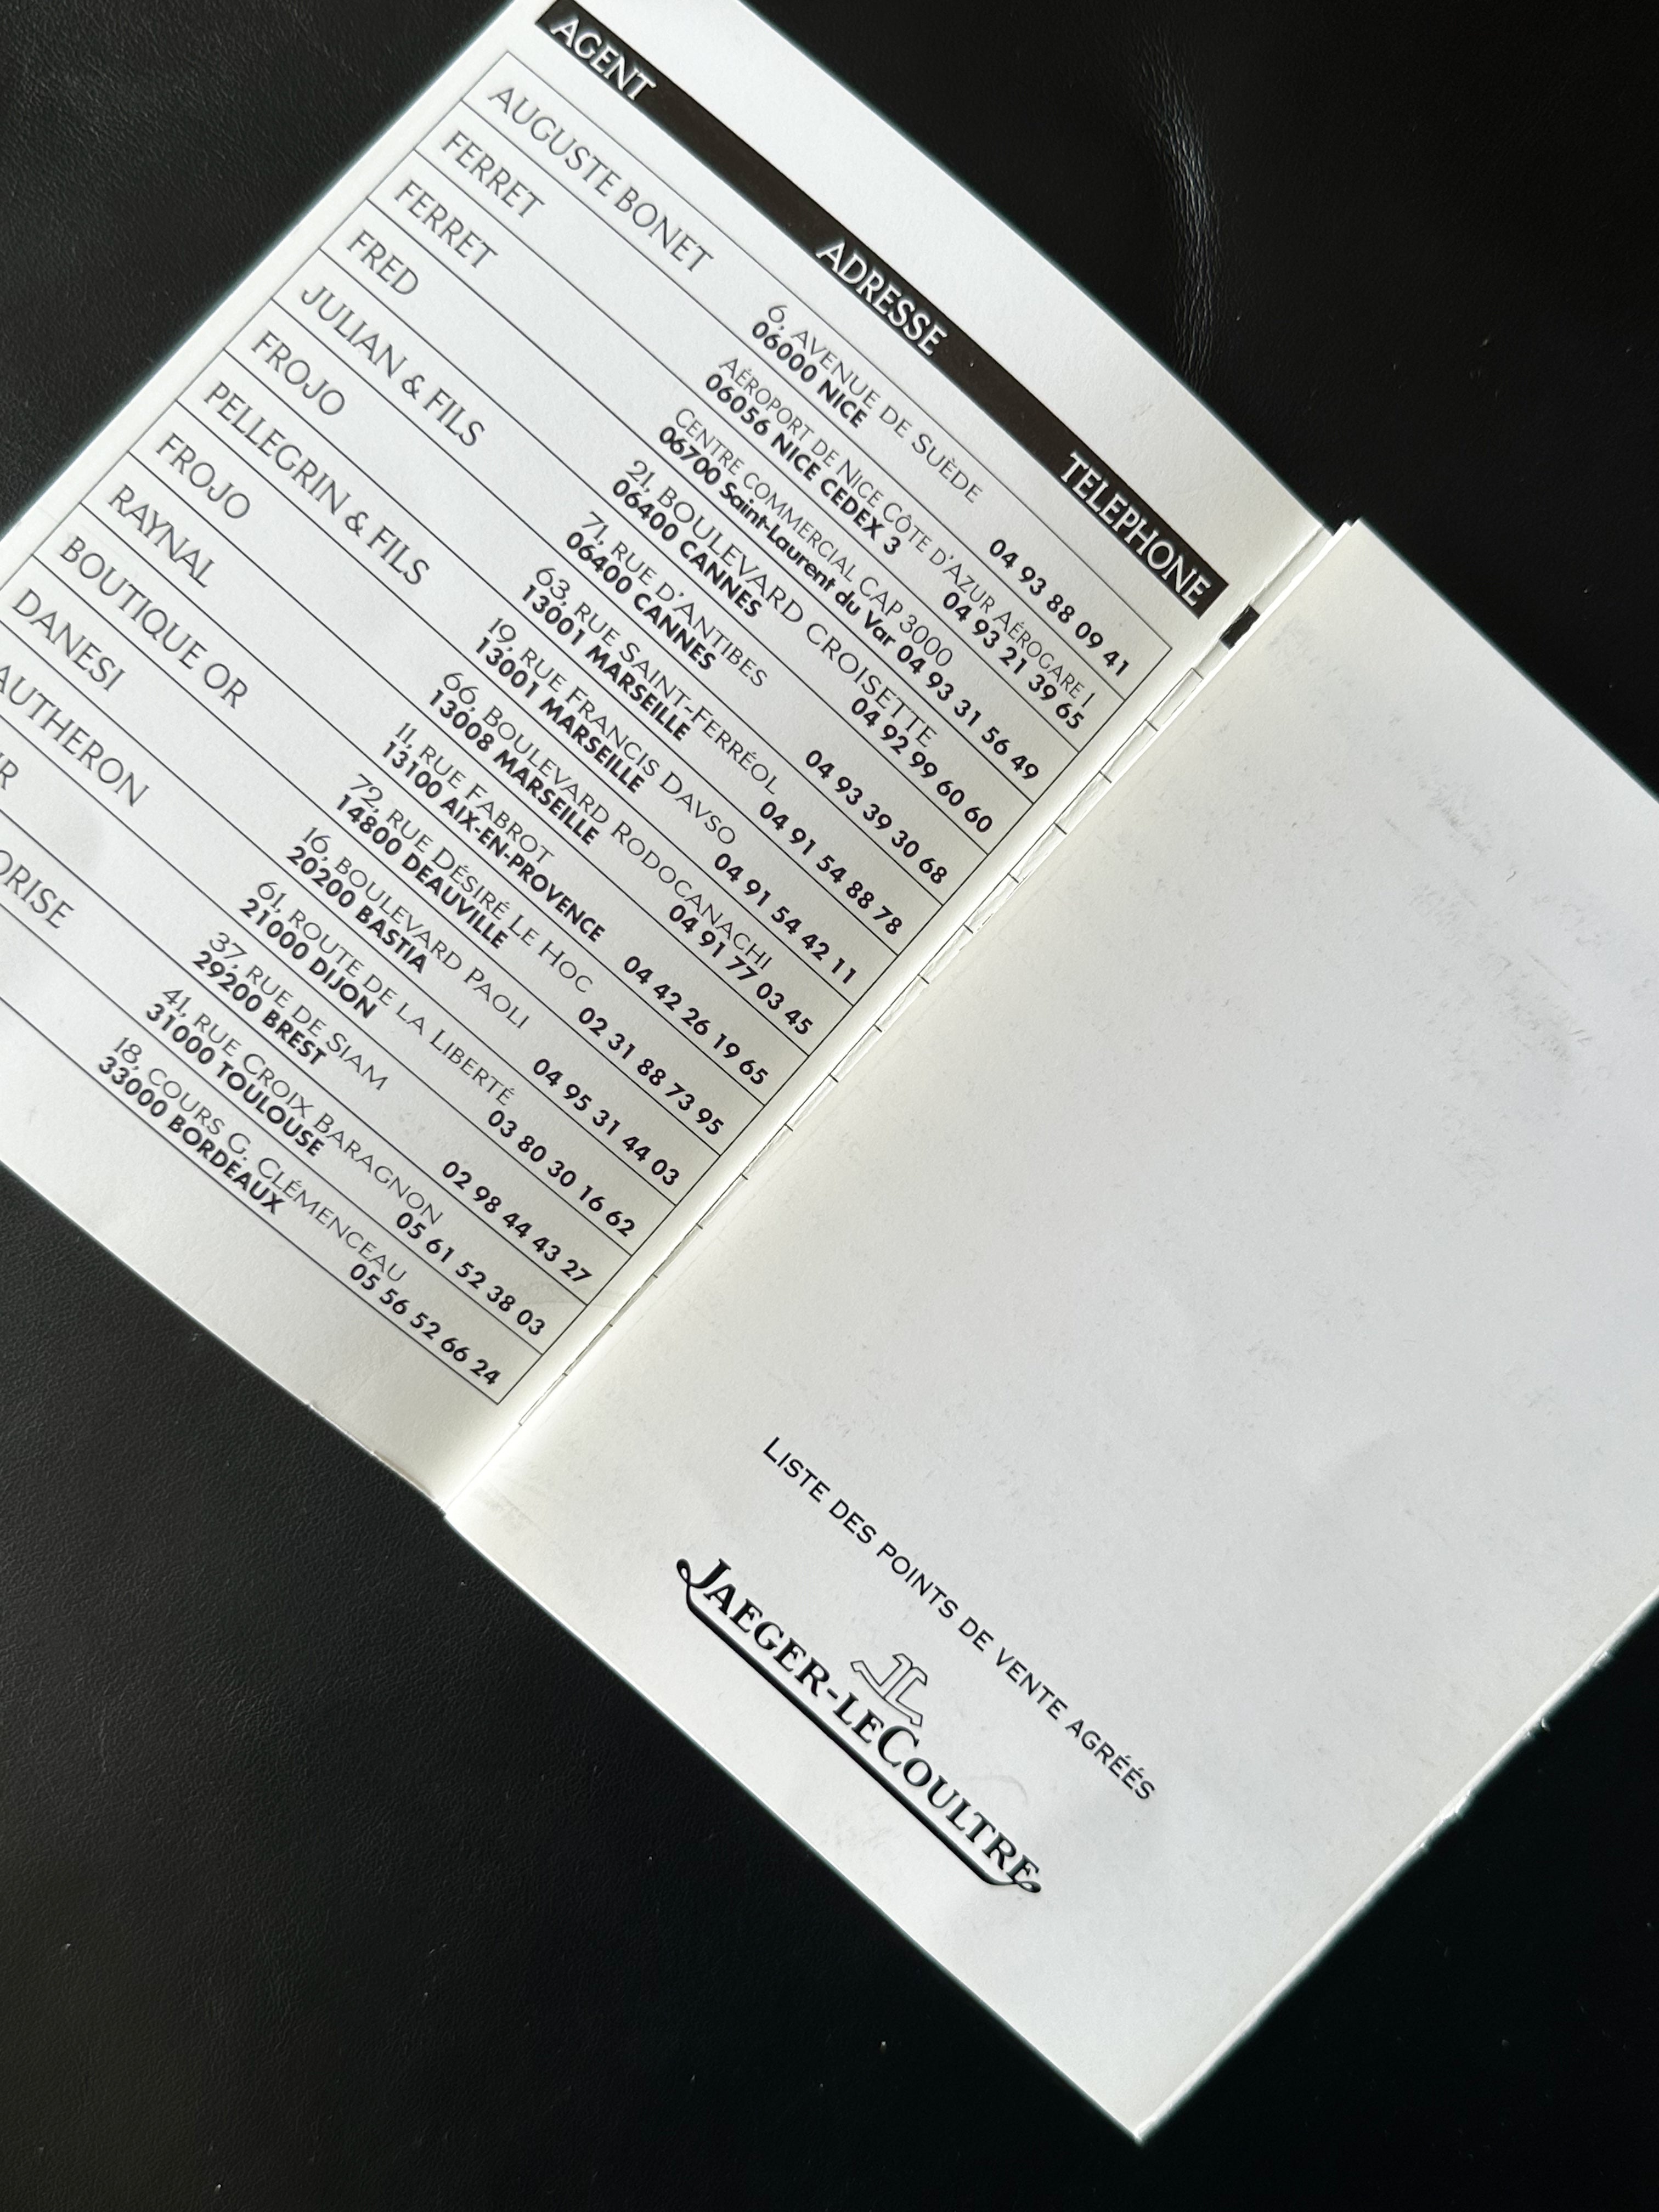 AGENT ADRESSE TELEPHONE
AUGUSTE BONET 6, AVENUE DE SUÈDE
06000 NICE 04 93 88 09 41
FERRET AÉROPORT DE NICE CÔTE D'AZUR AÉROGARE 1
06056 NICE CEDEX 3 04 93 21 39 65
FERRET CENTRE COMMERCIAL CAP 3000
06700 Saint-Laurent du Var 04 93 31 56 49
FRED 21, BOULEVARD CROISETTE
06400 CANNES 04 92 99 60 60
JULIAN & FILS 71, RUE D'ANTIBES
06400 CANNES 04 93 39 30 68
FROJO 63, RUE SAINT-FERRÉOL
13001 MARSEILLE 04 91 54 88 78
PELLEGRIN & FILS 19, RUE FRANCIS DAVSO
13001 MARSEILLE 04 91 54 42 11
FROJO 66, BOULEVARD RODOCANACHI
13008 MARSEILLE 04 91 77 03 45
RAYNAL 11, RUE FABROT
13100 AIX-EN-PROVENCE 04 42 26 19 65
BOUTIQUE OR 72, RUE DÉSIRÉ LE HOC
14800 DEAUVILLE 02 31 88 73 95
DANESI 16, BOULEVARD PAOLI
20200 BASTIA 04 95 31 44 03
AUTHERON 61, ROUTE DE LA LIBERTÉ
21000 DIJON 03 80 30 16 62
37, RUE DE SIAM
29200 BREST 02 98 44 43 27
41, RUE CROIX BARAGNON
31000 TOULOUSE 05 61 52 38 03
18, COURS G. CLÉMENCEAU
33000 BORDEAUX 05 56 52 66 24
LISTE DES POINTS DE VENTE AGRÉÉS
JAEGER-LECOULTRE